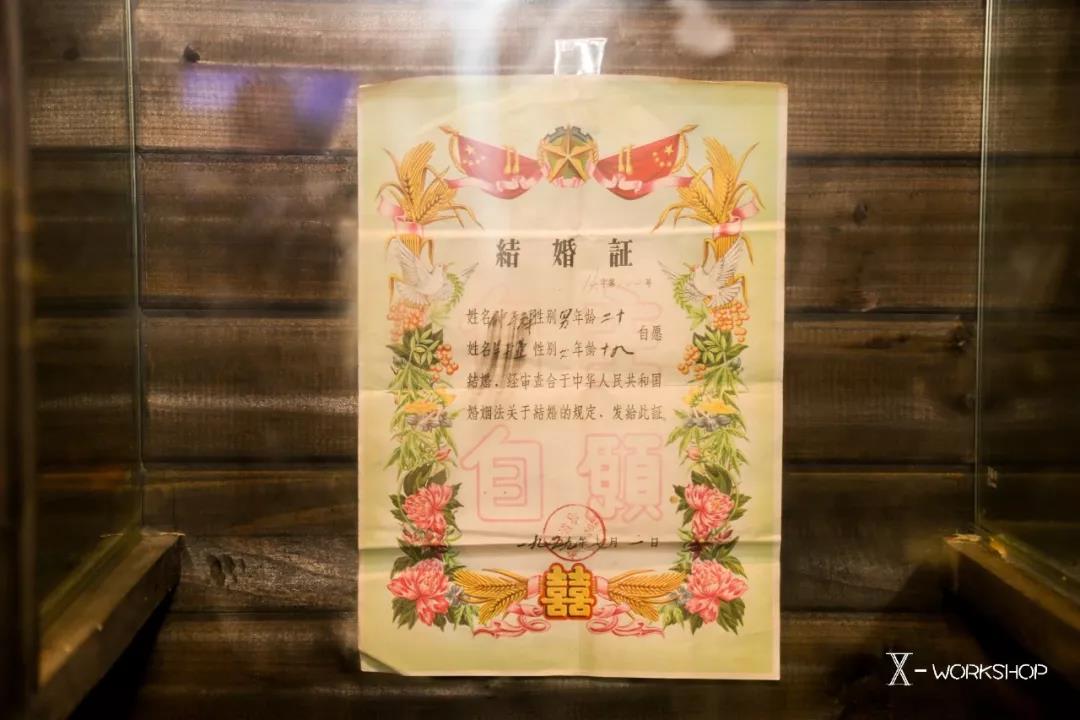 結婚証
字第 号
姓名 性别男年龄二十
姓名 性别女年龄十八
自愿
结婚，经审查合于中华人民共和国
婚姻法关于结婚的规定，发给此証。
自願
一九五九年 月 二日
囍
X-WORKSHOP